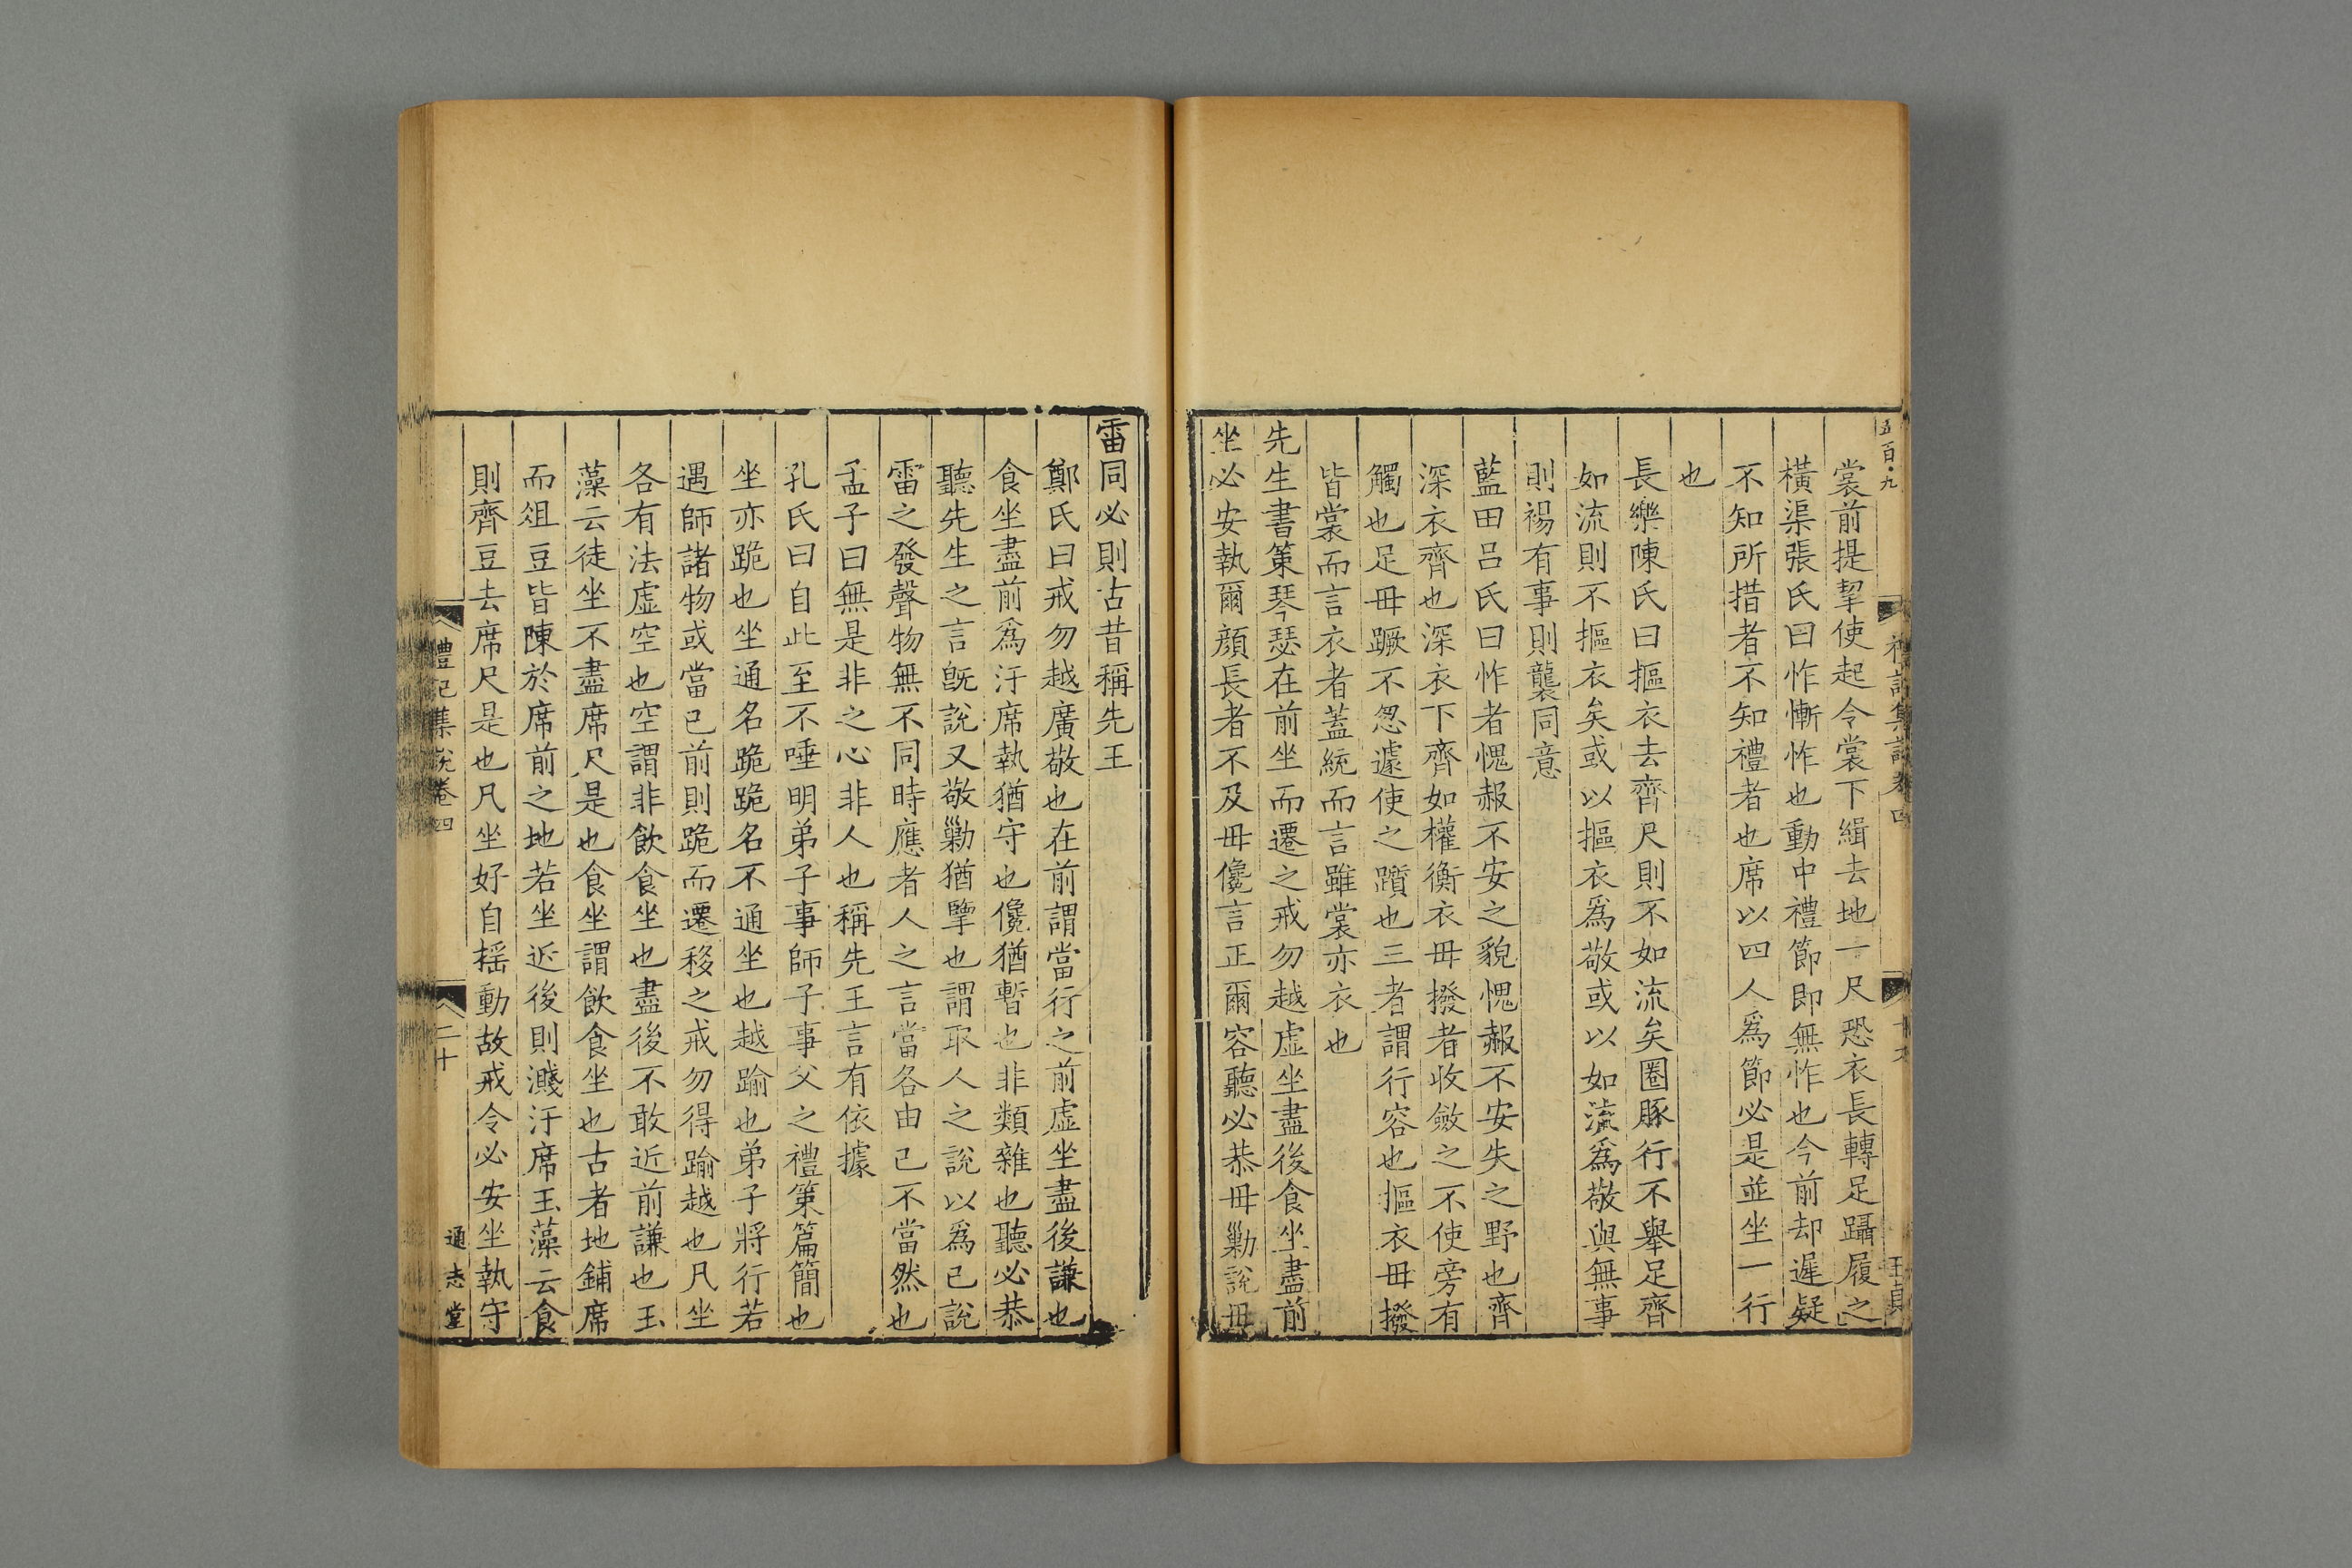 五百九
裳前提挈使起令裳下緝去地一尺恐衣長轉足躡履之
橫渠張氏曰怍慚怍也動中禮節即無怍也今前却遲疑
不知所措者不知禮者也席以四人爲節必是並坐一行
也
長樂陳氏曰摳衣去齊尺則不如流矣圈豚行不舉足齊
如流則不摳衣矣或以摳衣爲敬或以如流爲敬與無事
則裼有事則襲同意
藍田吕氏曰怍者愧赧不安之貌愧赧不安失之野也齊
深衣齊也深衣下齊如權衡衣毋撥者收斂之不使旁有
觸也足毋蹶不忽遽使之躓也三者謂行容也摳衣毋撥
皆裳而言衣者蓋統而言雖裳亦衣也
先生書策琴瑟在前坐而遷之戒勿越虛坐盡後食坐盡前
坐必安執爾顔長者不及毋儳言正爾容聽必恭毋勦說毋
雷同必則古昔稱先王
鄭氏曰戒勿越廣敬也在前謂當行之前虛坐盡後謙也
食坐盡前爲汙席執猶守也儳猶暫也非類雜也聽必恭
聽先生之言旣說又敬勦猶擥也謂取人之說以爲已說
雷之發聲物無不同時應者人之言當各由已不當然也
孟子曰無是非之心非人也稱先王言有依據
孔氏曰自此至不唾明弟子事師子事父之禮策篇簡也
坐亦跪也坐通名跪跪名不通坐也越踰也弟子將行若
遇師諸物或當已前則跪而遷移之戒勿得踰越也凡坐
各有法虛空也空謂非飲食坐也盡後不敢近前謙也玉
藻云徒坐不盡席尺是也食坐謂飲食坐也古者地鋪席
而俎豆皆陳於席前之地若坐近後則濺汙席玉藻云食
則齊豆去席尺是也凡坐好自揺動故戒令必安坐執守
禮記集說卷四
二十
通志堂